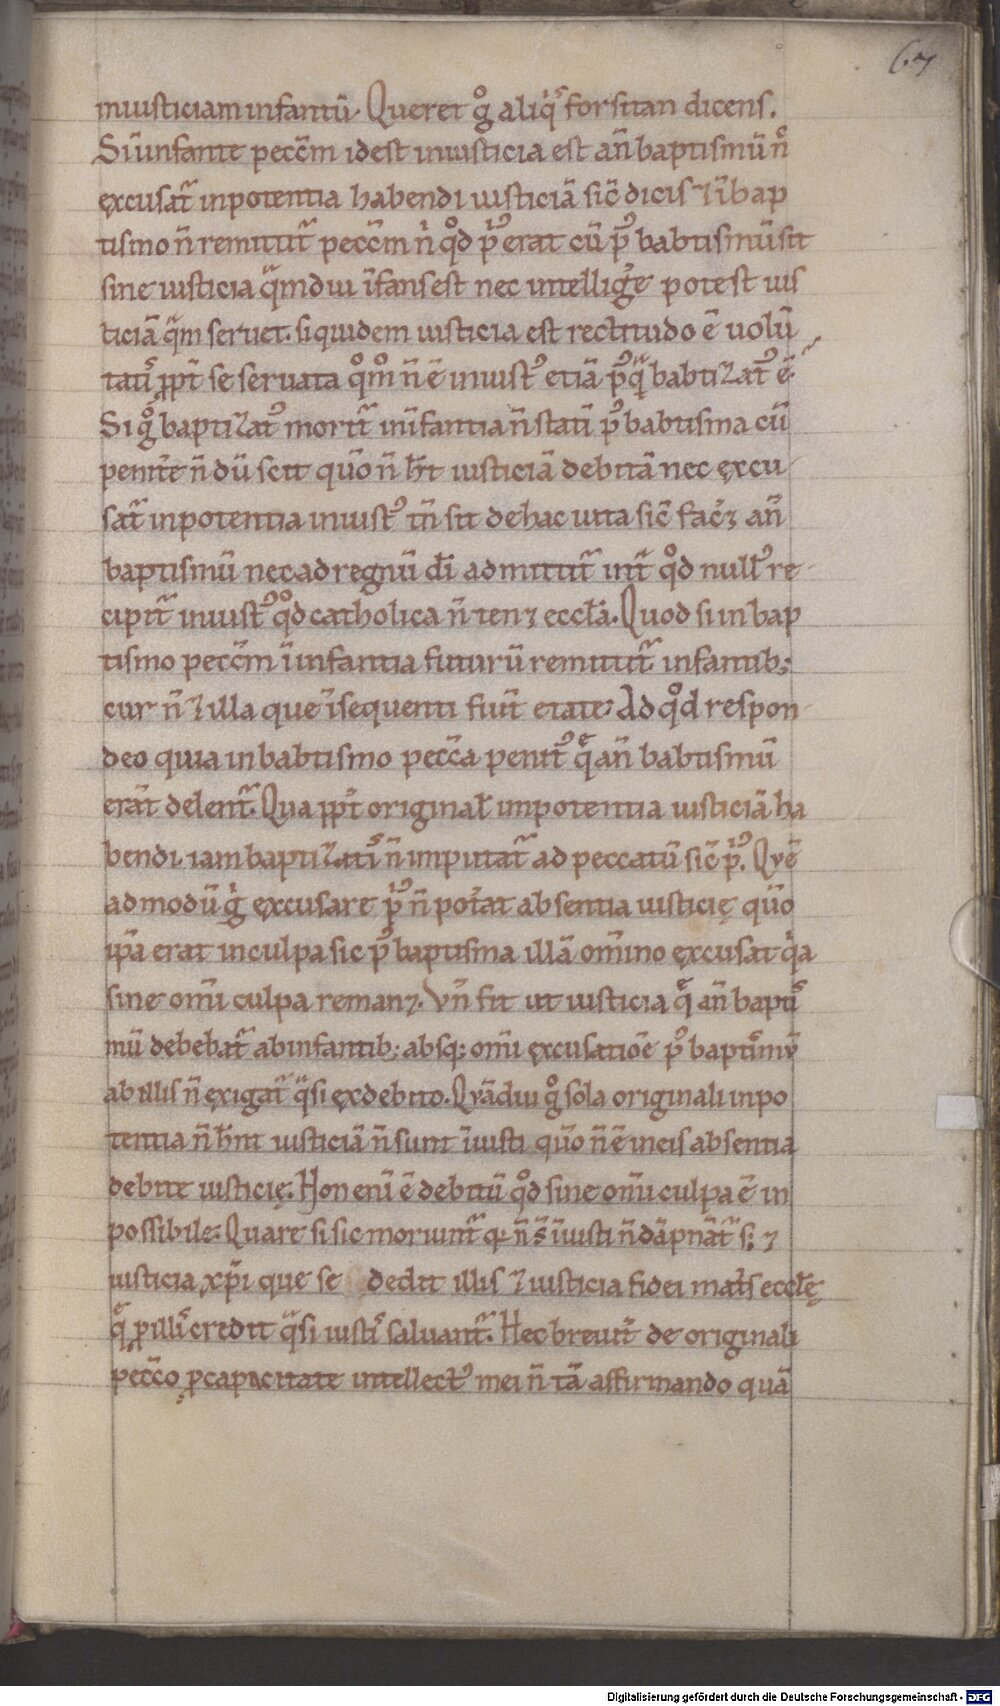 67
iniusticiam infantū. Queret g̊ aliq̓s forsitan dicens.
Si ı̄ infante pecc̄m idest iniusticia est an̄ baptismū n̄
excusat᷑ inpotentia habendi iusticiā sic̄ dicis ⁊ ı̄ bap
tismo n̄ remittit᷑ pecc̄m n̓ qd̊ p᷒ erat cū p᷒ babtismū sit
sine iusticia qͣmdiu ı̄fans est nec intellig̓e potest ius
ticiā qͣm seruet. siquidem iusticia est rectitudo ē uolū
tatis ꝓpt̄ se seruata qͦmͦ n̄ ē iniust᷒ etiā p᷒qͣ babtizat᷒ ē.
Si g̊ baptizat᷒ morit᷑ in ı̄fantia n̄ statı̄ p᷒ babtisma cū
penit̄e n̄dū scit qūo n̄ h̄t iusticiā debitā nec ęxcu
sat᷑ inpotentia iniust᷒ tn̄ sit de hac uita sic̄ fac̓ꝫ an̄
baptismū nec ad regnū dı̄ admittit᷑ int᷑ qd̊ null᷒ re
cipit᷑ iniust᷒ qd̊ catholica n̄ tenꝫ eccl̄a. Quod si in bap
tismo pecc̄m ı̄ infantia futurū remittit᷑ infantib;
cur n̄ ⁊ illa que ı̄sequenti fiūt etate. Ad qd̊ respon
deo quia in babtismo pecc̄a penit᷒ qͤ an̄ babtismū
erāt delent᷑. Qua ꝓpt̄ original̄ impotentia iusticiā ha
bendi. iam baptizatis n̄ imputat᷑ ad peccatū sic̄ p᷒. Quē
admodū g̊ ęxcusare p᷒ n̄ pot̓at absentia iusticię qūo
ip̄a erat in culpa sic p᷒ baptisma illā om̄ino ęxcusat qͥa
sine om̄i culpa remanꝫ. Vn̄ fit ut iusticia qͤ an̄ baptis
mū debebat᷑ ab infantib; absq; om̄i ęxcusatiōe p᷒ baptismū
ab illis n̄ ęxigat᷑ qͣsi ęx debito. Quādiu g̊ sola originali inpo
tentia n̄ h̄nt iusticiā n̄ sunt ı̄iusti qūo n̄ ē in eis absentia
debite iusticię. Non enı̄ ē debitū qd̊ sine om̄i culpa ē in
possibile. Quare si sic moriunt᷑ qꝛ n̄ s̄ ı̄iusti n̄ dāpnāt᷑ s; ⁊
iusticia xp̄i que se dedit illis ⁊ iusticia fidei mat̓s eccl̄ę
qͤ ꝑ illis credit qͣsi iusti saluant᷑. Hec breuit̄ de originali
pecc̄o ꝑ capacitate intellect᷒ mei n̄ tā affirmando quā
Digitalisierung gefördert durch die Deutsche Forschungsgemeinschaft - DFG